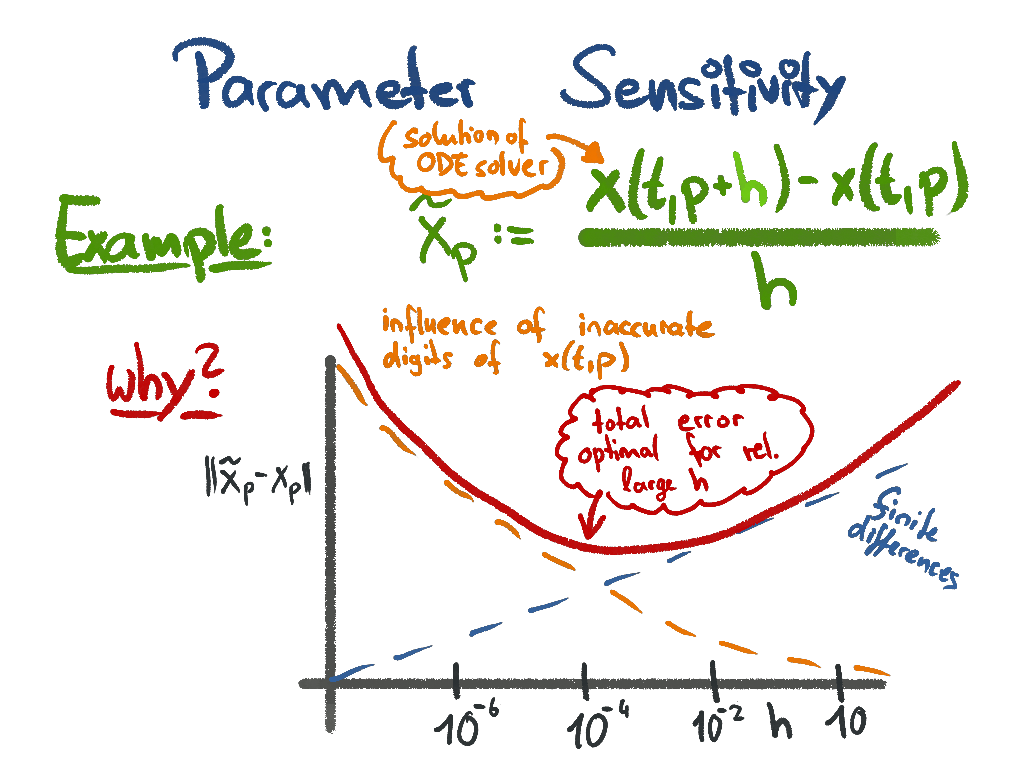 Parameter Sensitivity
solution of
ODE solver
Example:
x̃ₚ := x(t,p+h) - x(t,p)
h
influence of inaccurate
digits of x(t,p)
why?
total error
optimal for rel.
large h
||x̃ₚ - xₚ||
finite
differences
10⁻⁶ 10⁻⁴ 10⁻² h 10